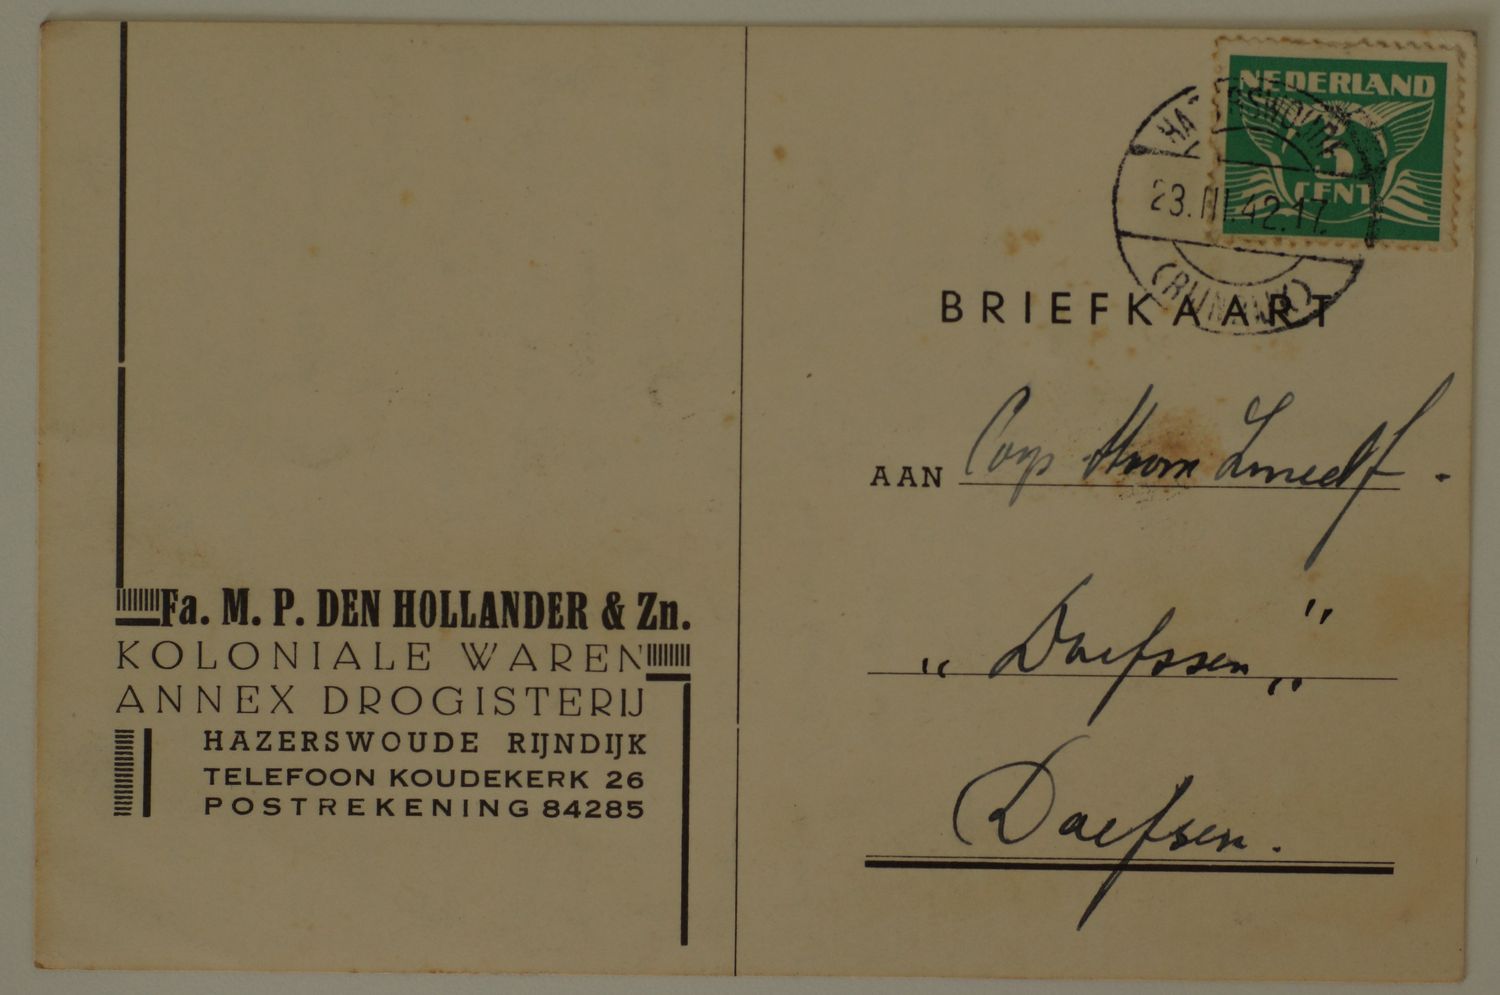 NEDERLAND
5
CENT
HAZERSWOUDE
23.III.42.17.
(RIJNDIJK)
BRIEFKAART
AAN Coop Stoom
„ Dalfssen „
Dalfsen.
Fa. M. P. DEN HOLLANDER & Zn.
KOLONIALE WAREN
ANNEX DROGISTERIJ
HAZERSWOUDE RIJNDIJK
TELEFOON KOUDEKERK 26
POSTREKENING 84285